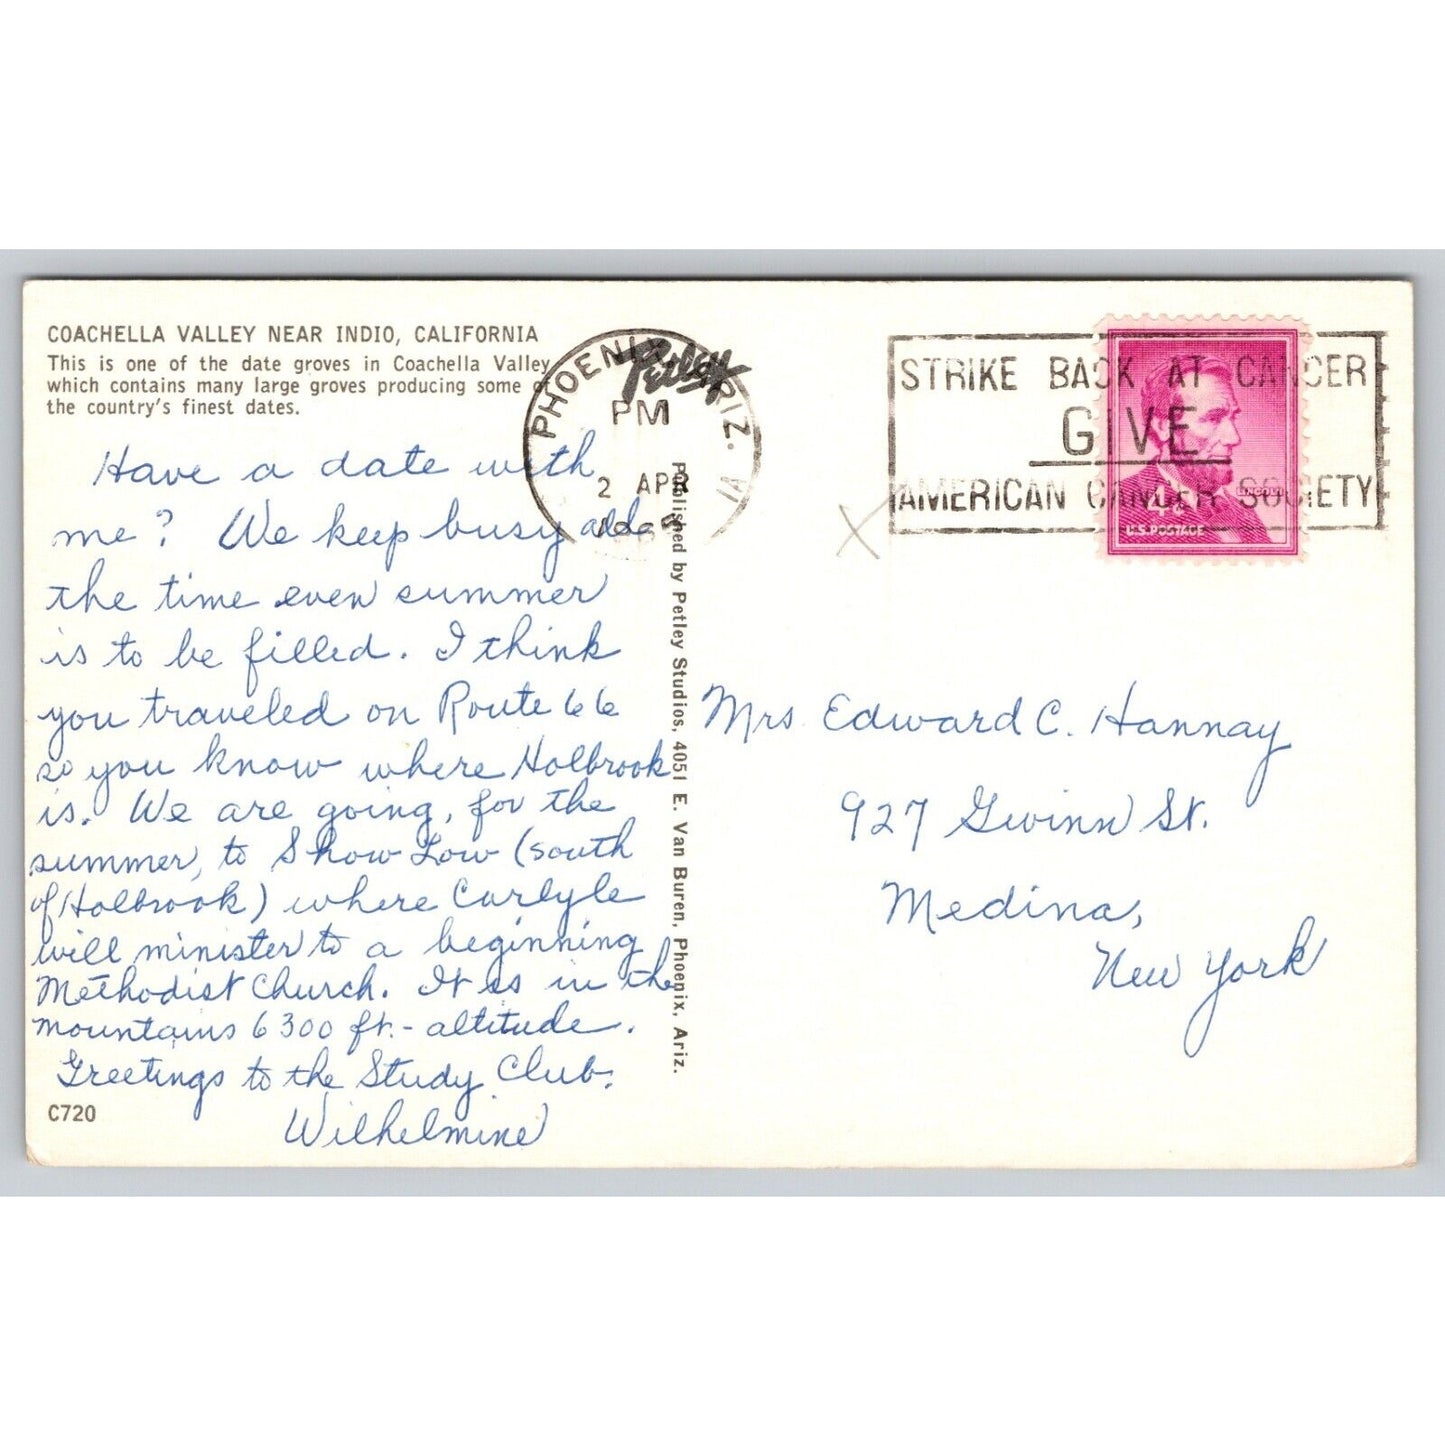 COACHELLA VALLEY NEAR INDIO, CALIFORNIA
This is one of the date groves in Coachella Valley
which contains many large groves producing some of
the country's finest dates.
Have a date with
me? We keep busy all
the time even summer
is to be filled. I think
you traveled on Route 66
so you know where Holbrook
is. We are going, for the
summer, to Show Low (south
of Holbrook) where Carlyle
will minister to a beginning
Methodist Church. It is in the
mountains 6300 ft. - altitude.
Greetings to the Study Club.
Wilhelmine
C720
Petley
Published by Petley Studios, 4051 E. Van Buren, Phoenix, Ariz.
PHOENIX, ARIZ.
PM
2 APR
STRIKE BACK AT CANCER
GIVE
AMERICAN CANCER SOCIETY
LINCOLN
4¢
U.S. POSTAGE
X
Mrs. Edward C. Hannay
927 Gwinn St.
Medina,
New York